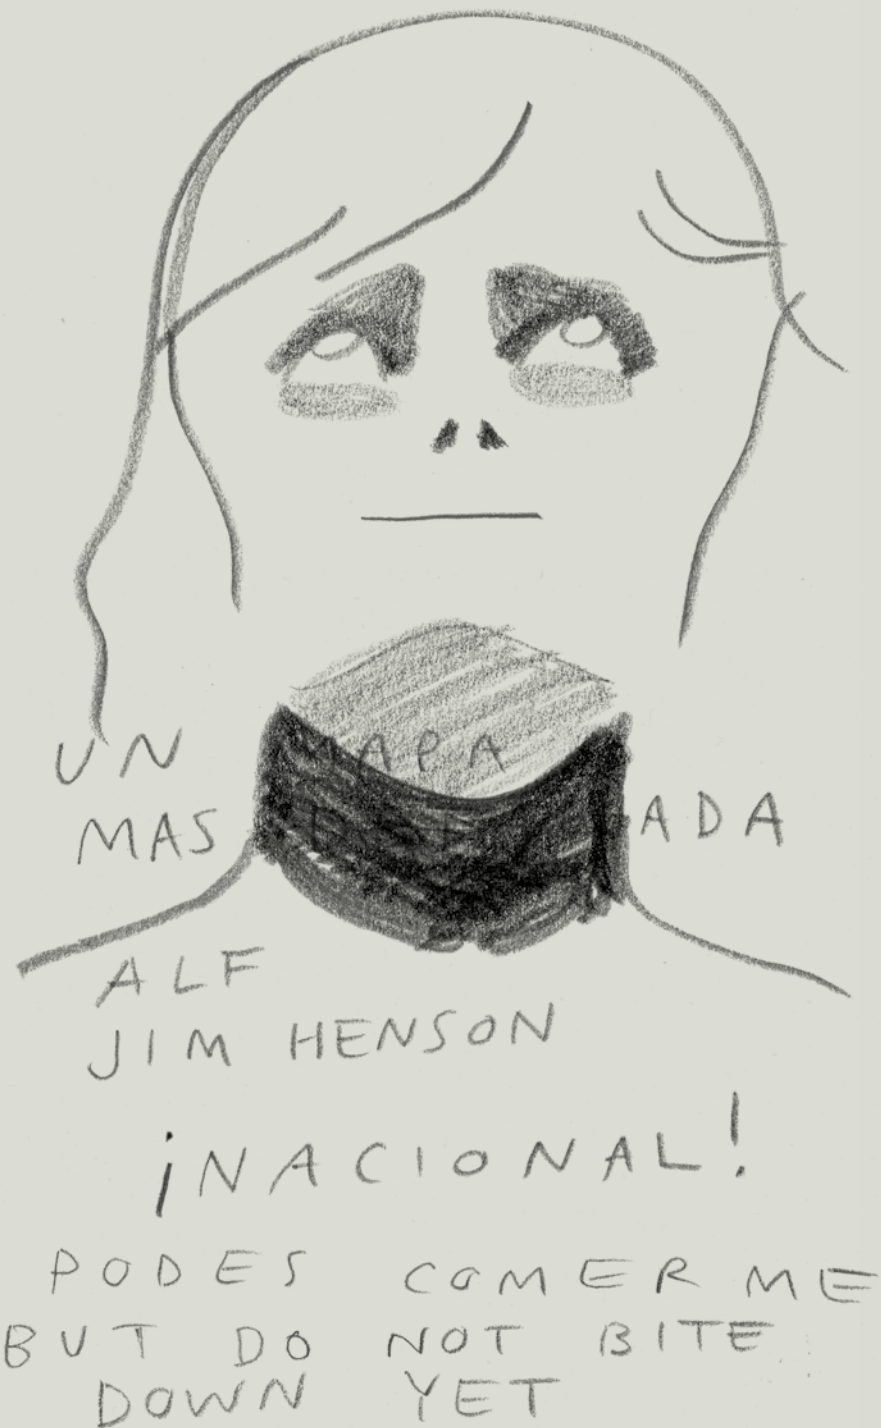 UN MAPA
MAS
ALF
JIM HENSON
¡NACIONAL!
PODES COMERME
BUT DO NOT BITE
DOWN YET